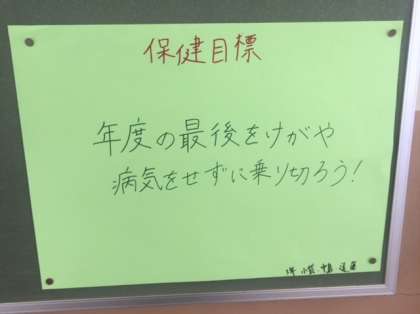 保健目標
年度の最後をけがや
病気をせずに乗り切ろう!